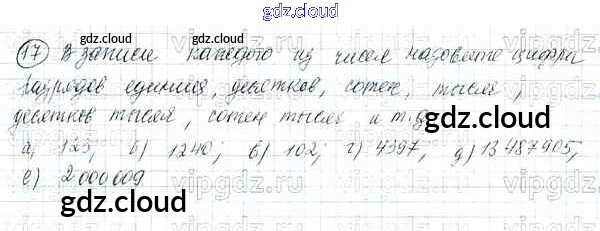 gdz.cloud
17 В записи каждого из чисел назовите цифры
разрядов единиц, десятков, сотен, тысяч,
десятков тысяч, сотен тысяч и т.д.
а) 123; б) 1240; в) 102; г) 4397; д) 13 487 905;
е) 2 000 009
gdz.cloud
gdz.cloud
gdz.cloud
gdz.cloud